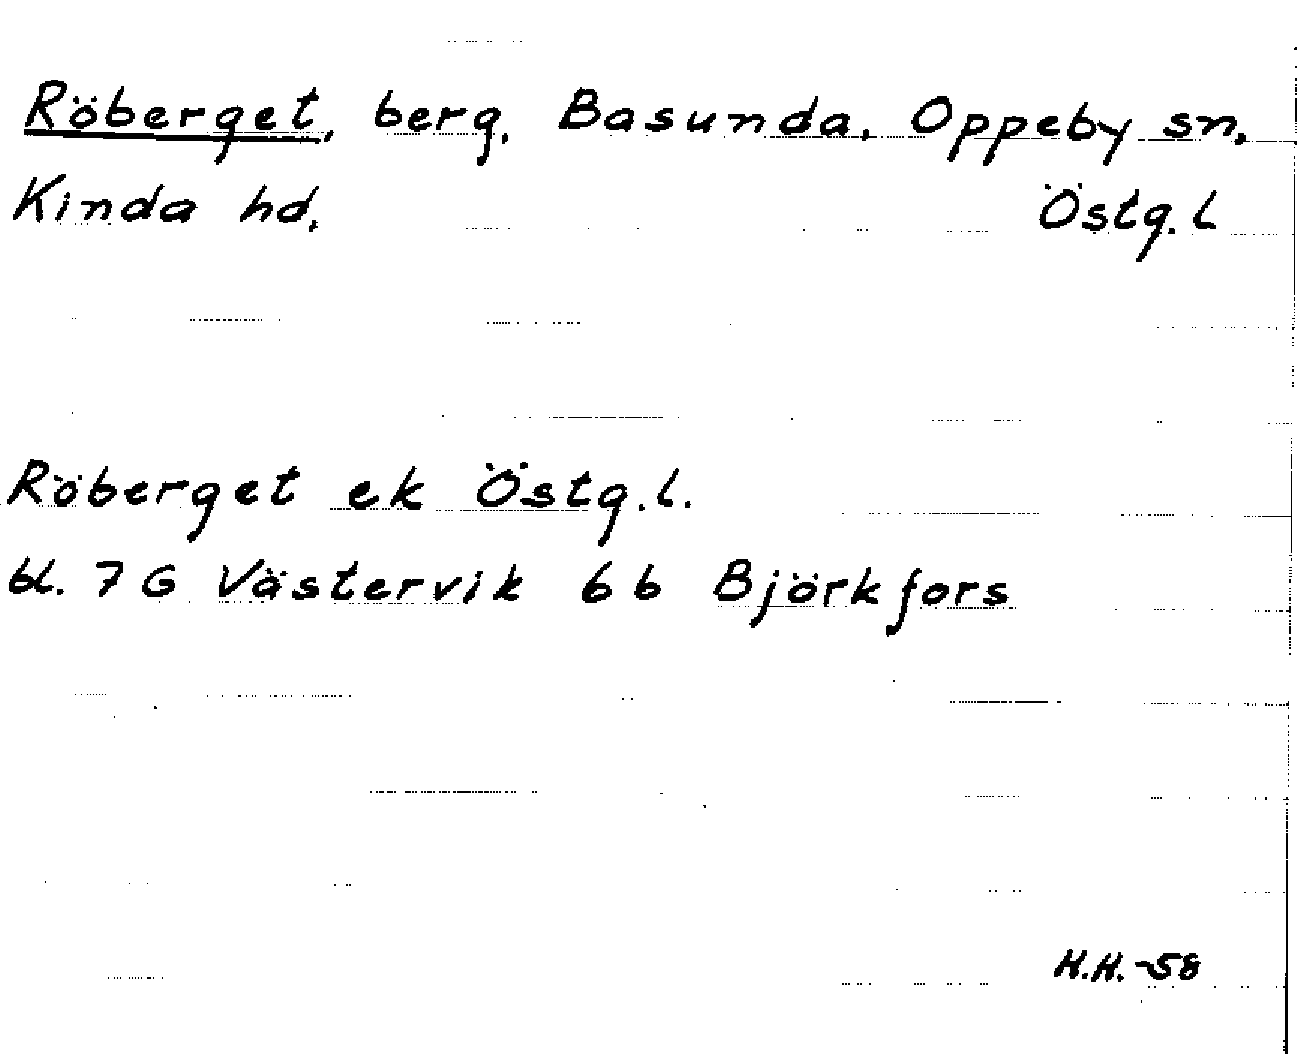 Röberget, berg, Basunda, Oppeby sn,
Kinda hd. Östg. l
Röberget ek Östg. l.
bl. 7 G Västervik 6 b Björkfors
H.H. -58